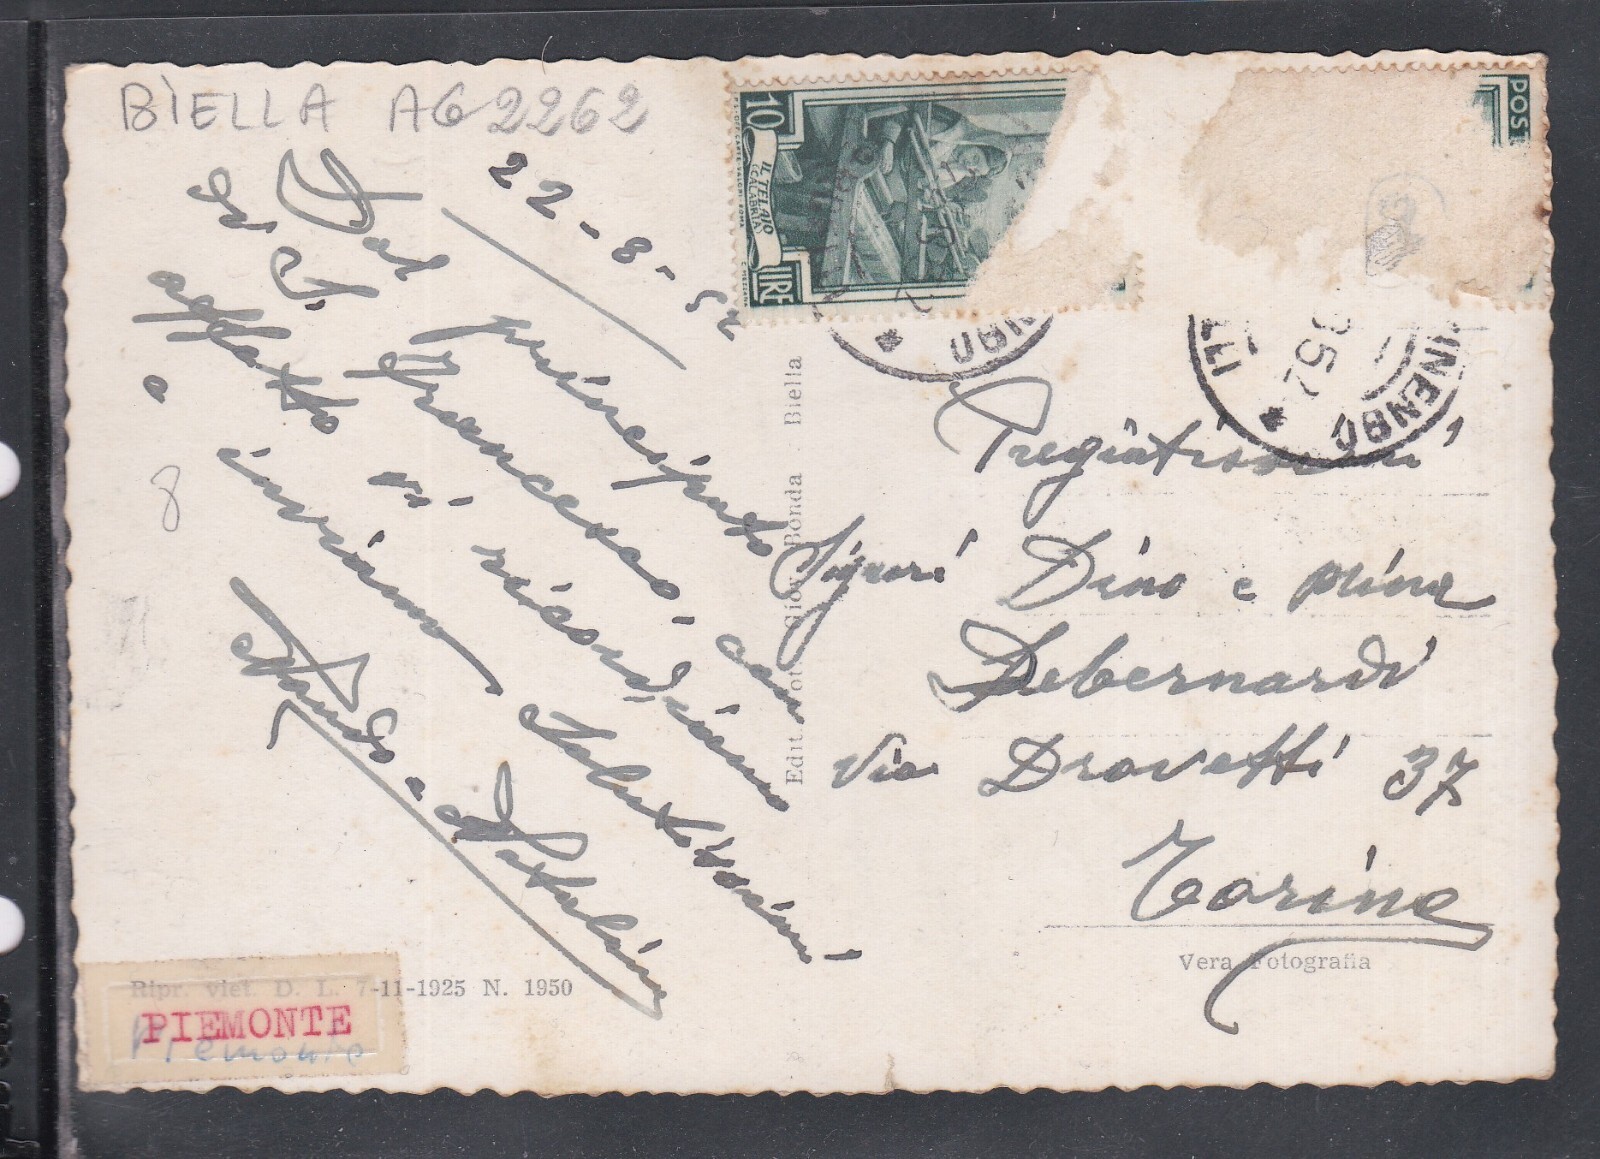 BIELLA AG 2262
22-8-52
Dal principesco
di S. Francesco, con
affetto vi ricordiamo
e inviamo Salutissimi
Nando e Natalina
8
10
LIRE
IL TELAIO
(CALABRIA)
POST
952
Edit. Fot. Giov. Bonda . Biella
Pregiatissimi
Signori Dino e Mina
Debernardi
Via Drovetti 37
Torino
Vera Fotografia
Ripr. viet. D. L. 7-11-1925 N. 1950
PIEMONTE
Piemonte